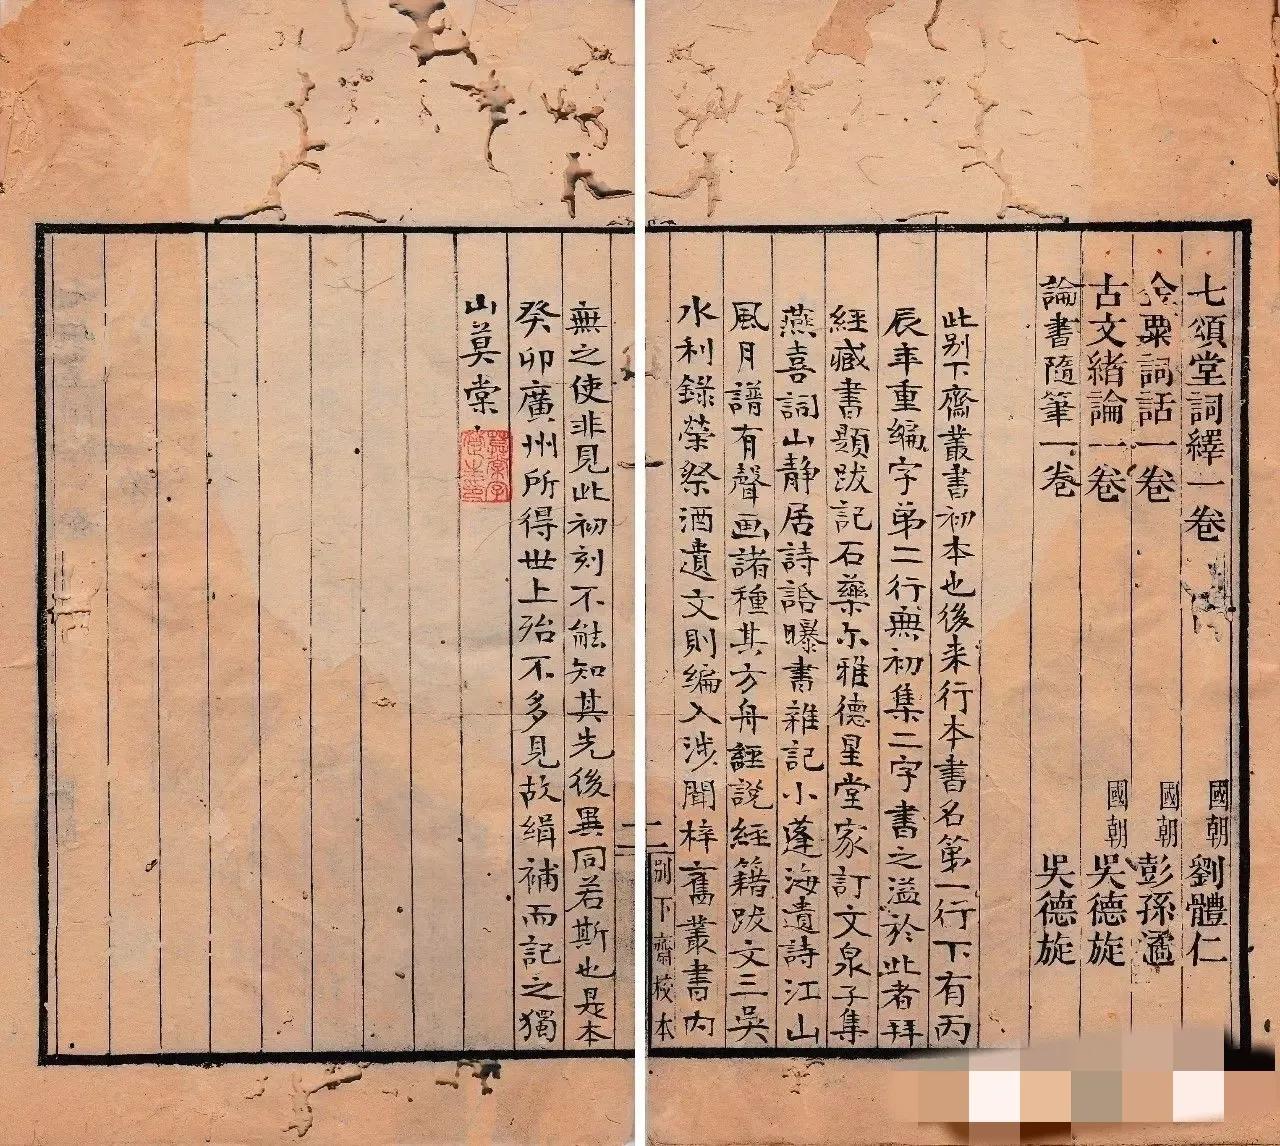 七頌堂詞繹一卷 國朝 劉體仁
金粟詞話一卷 國朝 彭孫遹
古文緒論一卷 國朝 吳德旋
論書隨筆一卷 吳德旋
此别下齋叢書初本也後来行本書名第一行下有丙
辰年重編字弟二行無初集二字書之溢於此者拜
經藏書題跋記石藥尔雅德星堂家訂文泉子集
燕喜詞山静居詩話曝書雜記小蓬海遺詩江山
風月譜有聲画諸種其方舟經說經籍跋文三吳
水利錄榮祭酒遺文則編入涉聞梓舊叢書内
二
别下齋校本
無之使非見此初刻不能知其先後異同若斯也是本
癸卯廣州所得世上殆不多見故緝補而記之獨
山莫棠